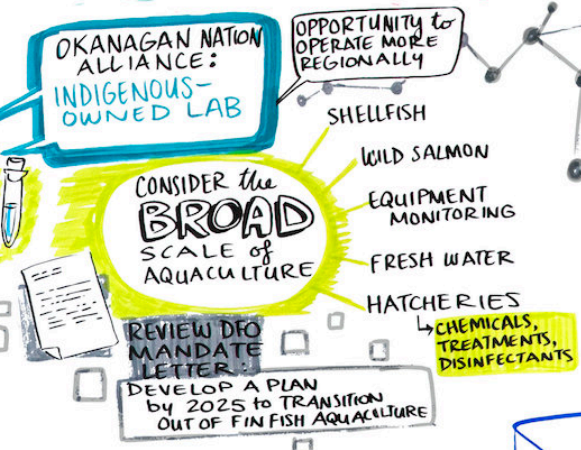 OKANAGAN NATION
ALLIANCE:
INDIGENOUS-
OWNED LAB
OPPORTUNITY to
OPERATE MORE
REGIONALLY
CONSIDER the
BROAD
SCALE of
AQUACULTURE
SHELLFISH
WILD SALMON
EQUIPMENT
MONITORING
FRESH WATER
HATCHERIES
CHEMICALS,
TREATMENTS,
DISINFECTANTS
REVIEW DFO
MANDATE
LETTER:
DEVELOP A PLAN
by 2025 to TRANSITION
OUT OF FINFISH AQUACULTURE